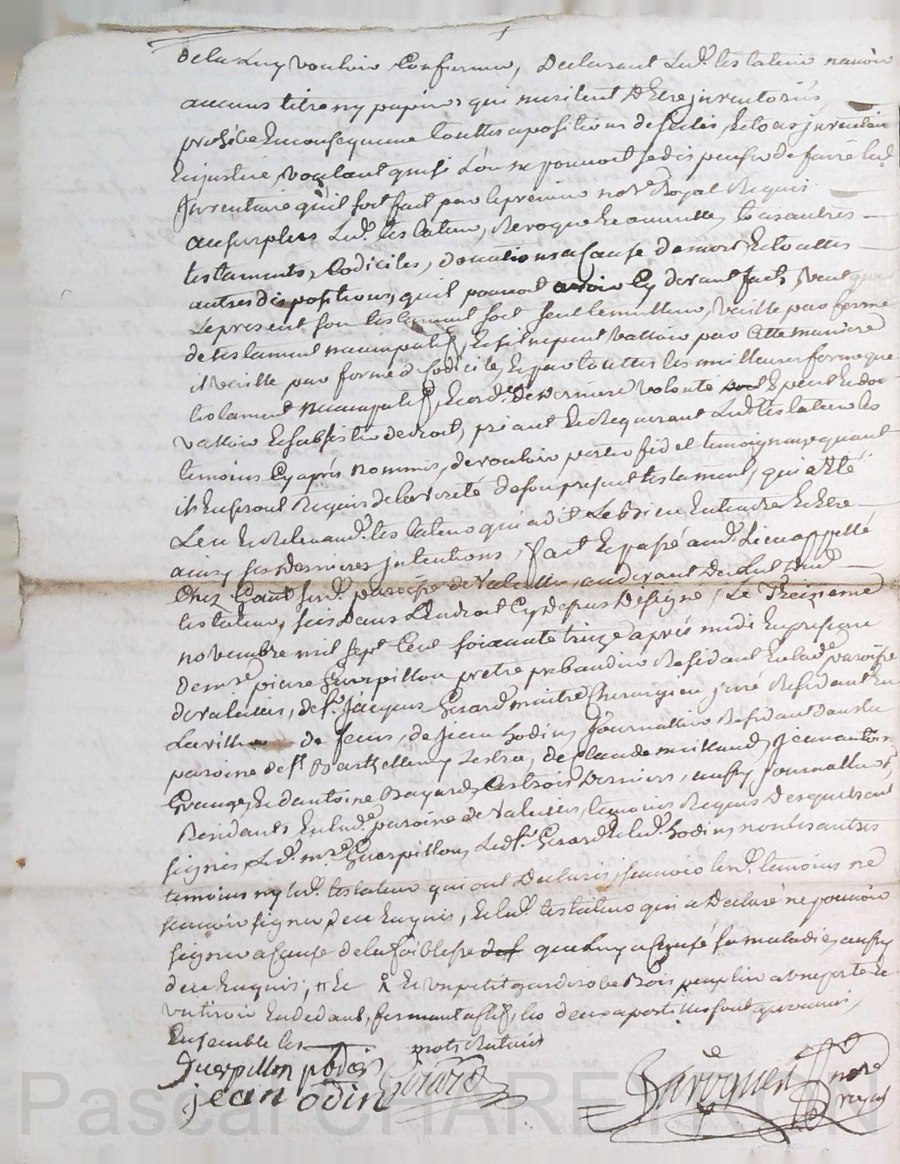 de la luy vouloir Confirmer, Declarant Lud. testateur navoir
aucuns titre ny papiers qui meritent Detre jnventoriés
prohibe En consequence touttes apositions de scelés, Et tous jnventaire
En justice, voulant que si Lon se pouvoit dispenser de faire led.
Jnventaire qu'il soit fait par le premier no.re Royal Requis
au surplus Lud. testateur, Revoque Et annulle, tous autres
testaments, Codiciles, donations a Cause de mort, Et touttes
autres dispositions, quil pouroit avoir Cy devant fait, veut que
Le present son testament soit seul Et meilleur, vaille par forme
de testament nuncupatif, Et sil ne peut valloir par Cette maniere
il vaille par forme de Codicile, Et par touttes les meilleures formes que
testament nuncupatif, Et ord.e de derniere volonté peut Et doit
valloir Et subsister de droit, priant Et Requerant Lud. testateur les
temoins Cy aprés nommés, de vouloir porter fidel temoignage quant
ils En seront Requis de la verité de son present testament, qui a Eté
Leu Et Releu aud. testateur qui a dit Le bien Entendre Et Etre
ainsy ses dernieres jntentions, fait Et passé aud. Lieu appellé
Chez paroisse de Valeilles, au devant Du Lit dud.
testateur, sis Dans L'Endroit Cy dessus Designé, Le Treizieme
novembre mil sept Cent soixante treize aprés midi En presence
de m.re pierre Guerpillon pretre prebandier Residant En lad. paroisse
de valeilles, de s.r Jacques Girard maitre Chirurgien juré Residant En
La ville de feurs, de Jean hodin, Journallier Residant dans la
paroisse de s.t Barthellemy Lestra, de Claude milland, Jean antoine
Grange, Et d'antoine Bayard, Ces trois Derniers, aussy journalliers,
Residants En lad. paroisse de Valeilles, temoins Requis Desquels ont
signés, Led. m.re Guerpillon, Led. s.r Girard Et led. hodin, non les autres
temoins ny Led. testateur qui ont Declarés, scavoir les d. temoins ne
scavoir signer de ce Enquis, Et led. testateur qui a Declaré ne pouvoir
signer a Cause de la foiblesse que luy a Causé sa maladie, aussy
de ce Enquis, Et Et un petit garderobe Bois peuplier a une porte Et
un tiroir En dedans, fermant a Clef, les deux apostilles sont aprouvés,
Ensemble les mots Raturés
Guerpillon pbdier Girard
jean odin
Baroquen no.re royal
Pascal CHARETTRON